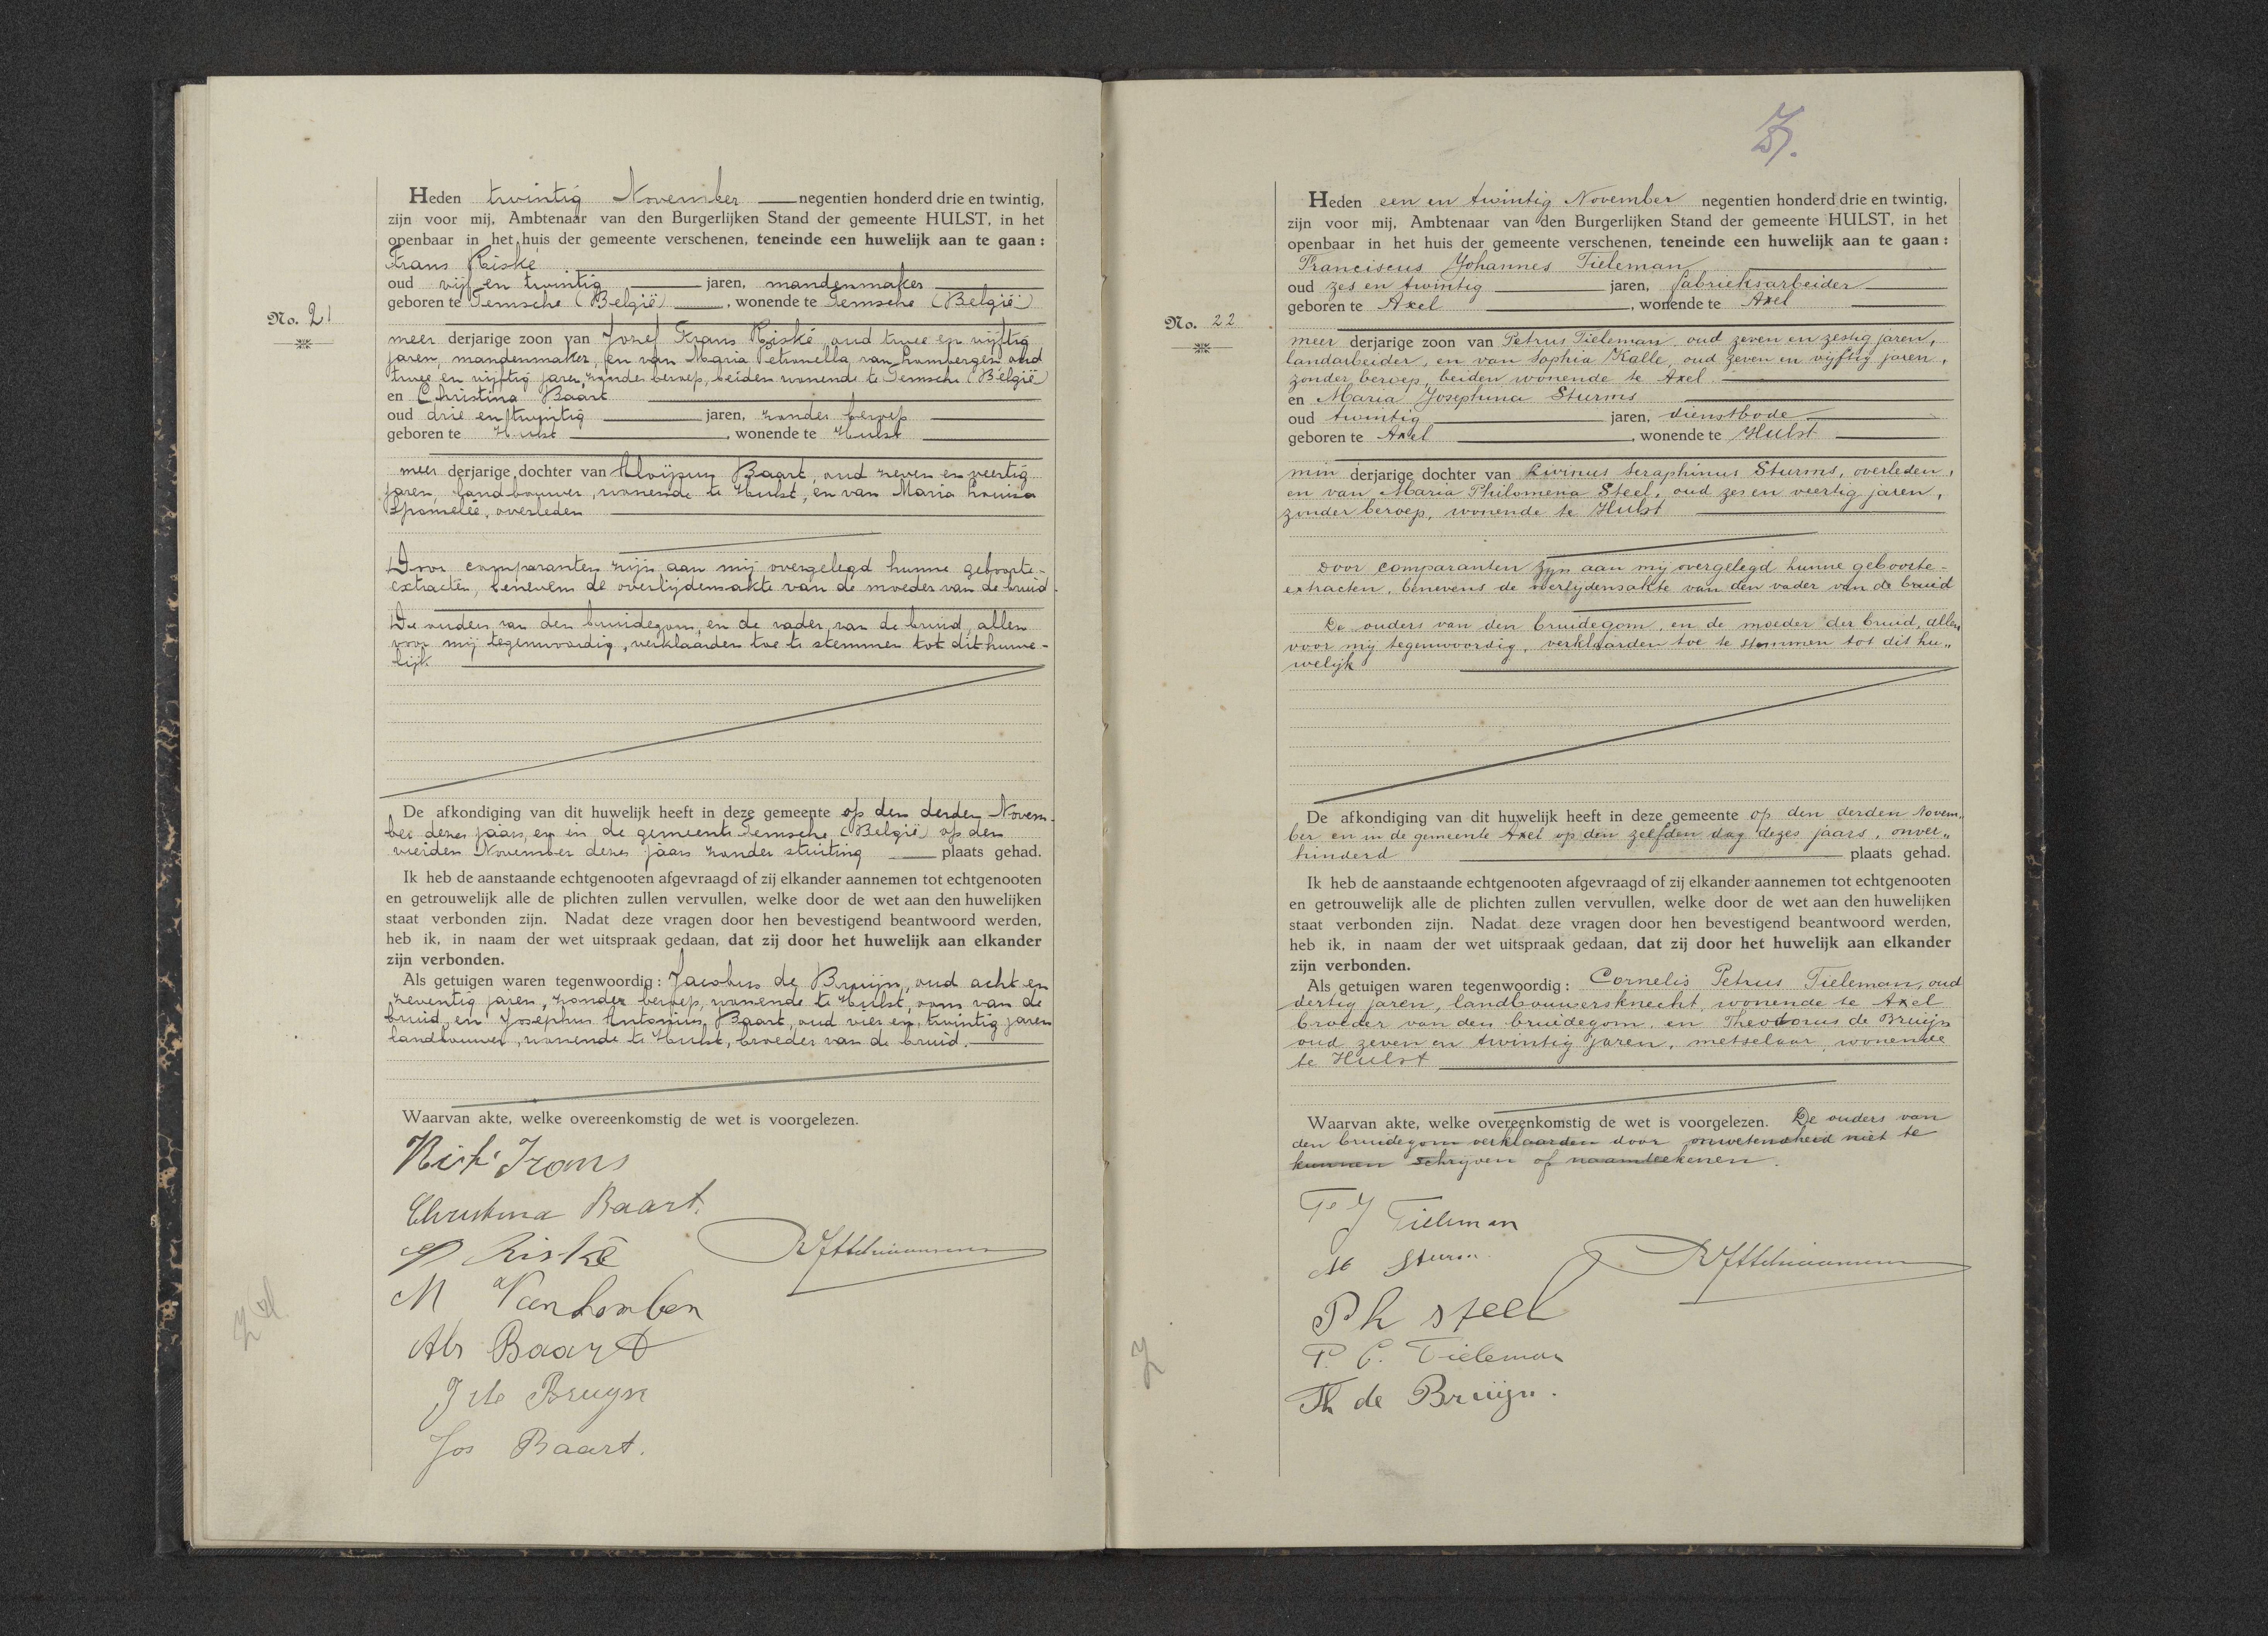 No. 21
Heden twintig November negentien honderd drie en twintig,
zijn voor mij, Ambtenaar van den Burgerlijken Stand der gemeente HULST, in het
openbaar in het huis der gemeente verschenen, teneinde een huwelijk aan te gaan:
Frans Riské
oud vijf en twintig jaren, mandenmaker
geboren te Temsche (België), wonende te Temsche (België)
meer derjarige zoon van Jozef Frans Riské, oud twee en vijftig
jaren, mandenmaker, en van Maria Petronella van Lombergen oud
twee en vijftig jaren, zonder beroep, beiden wonende te Temsche (België)
en Christina Baart
oud drie en twintig jaren, zonder beroep
geboren te Hulst, wonende te Hulst
meer derjarige dochter van Aloijsius Baart, oud zeven en veertig
jaren, landbouwer, wonende te Hulst, en van Maria Louisa
overleden
Door comparanten zijn aan mij overgelegd hunne geboorte-
extracten, benevens de overlijdensakte van de moeder van de bruid.
De ouders van den bruidegom, en de vader van de bruid, allen
voor mij tegenwoordig, verklaarden toe te stemmen tot dit huwe-
lijk
De afkondiging van dit huwelijk heeft in deze gemeente op den derden Novem-
ber dezes jaars, en in de gemeente Temsche (België) op den
vierden November dezes jaars zonder stuiting plaats gehad.
Ik heb de aanstaande echtgenooten afgevraagd of zij elkander aannemen tot echtgenooten
en getrouwelijk alle de plichten zullen vervullen, welke door de wet aan den huwelijken
staat verbonden zijn. Nadat deze vragen door hen bevestigend beantwoord werden,
heb ik, in naam der wet uitspraak gedaan, dat zij door het huwelijk aan elkander
zijn verbonden.
Als getuigen waren tegenwoordig: Jacobus de Bruijn, oud acht en
zeventig jaren, zonder beroep, wonende te Hulst, oom van de
bruid, en Josephus Antonius Baart, oud vier en twintig jaren
landbouwer, wonende te Hulst, broeder van de bruid.
Waarvan akte, welke overeenkomstig de wet is voorgelezen.
Riské Frans
Christina Baart.
Riské
M Vanlomben
Als Baart
J de Bruyn
Jos Baart.
No. 22
Heden een en twintig November negentien honderd drie en twintig,
zijn voor mij, Ambtenaar van den Burgerlijken Stand der gemeente HULST, in het
openbaar in het huis der gemeente verschenen, teneinde een huwelijk aan te gaan:
Franciscus Johannes Tieleman
oud zes en twintig jaren, fabrieksarbeider
geboren te Axel, wonende te Axel
meer derjarige zoon van Petrus Tieleman oud zeven en zestig jaren,
landarbeider, en van Sophia Kalle, oud zeven en vijftig jaren,
zonder beroep, beiden wonende te Axel.
en Maria Josephina Sturms
oud twintig jaren, dienstbode
geboren te Axel, wonende te Hulst
min derjarige dochter van Livinus Seraphinus Sturms, overleden,
en van Maria Philomena Steel, oud zes en veertig jaren,
zonder beroep, wonende te Hulst
Door comparanten zijn aan mij overgelegd hunne geboorte-
extracten, benevens de overlijdensakte van den vader van de bruid
De ouders van den bruidegom, en de moeder der bruid, allen
voor mij tegenwoordig, verklaarden toe te stemmen tot dit hu„
welijk
De afkondiging van dit huwelijk heeft in deze gemeente op den derden Novem„
ber en in de gemeente Axel op den zelfden dag dezes jaars, onver„
hinderd plaats gehad.
Ik heb de aanstaande echtgenooten afgevraagd of zij elkander aannemen tot echtgenooten
en getrouwelijk alle de plichten zullen vervullen, welke door de wet aan den huwelijken
staat verbonden zijn. Nadat deze vragen door hen bevestigend beantwoord werden,
heb ik, in naam der wet uitspraak gedaan, dat zij door het huwelijk aan elkander
zijn verbonden.
Als getuigen waren tegenwoordig: Cornelis Petrus Tieleman, oud
dertig jaren, landbouwersknecht, wonende te Axel
broeder van den bruidegom, en Theodorus de Bruijn
oud zeven en twintig jaren, metselaar, wonende
te Hulst
Waarvan akte, welke overeenkomstig de wet is voorgelezen. De ouders van
den bruidegom verklaarden door onwetendheid niet te
kunnen schrijven of naamteekenen.
Tieleman
M Sturm
Ph steel
P. C. Tieleman
Th de Bruijn.